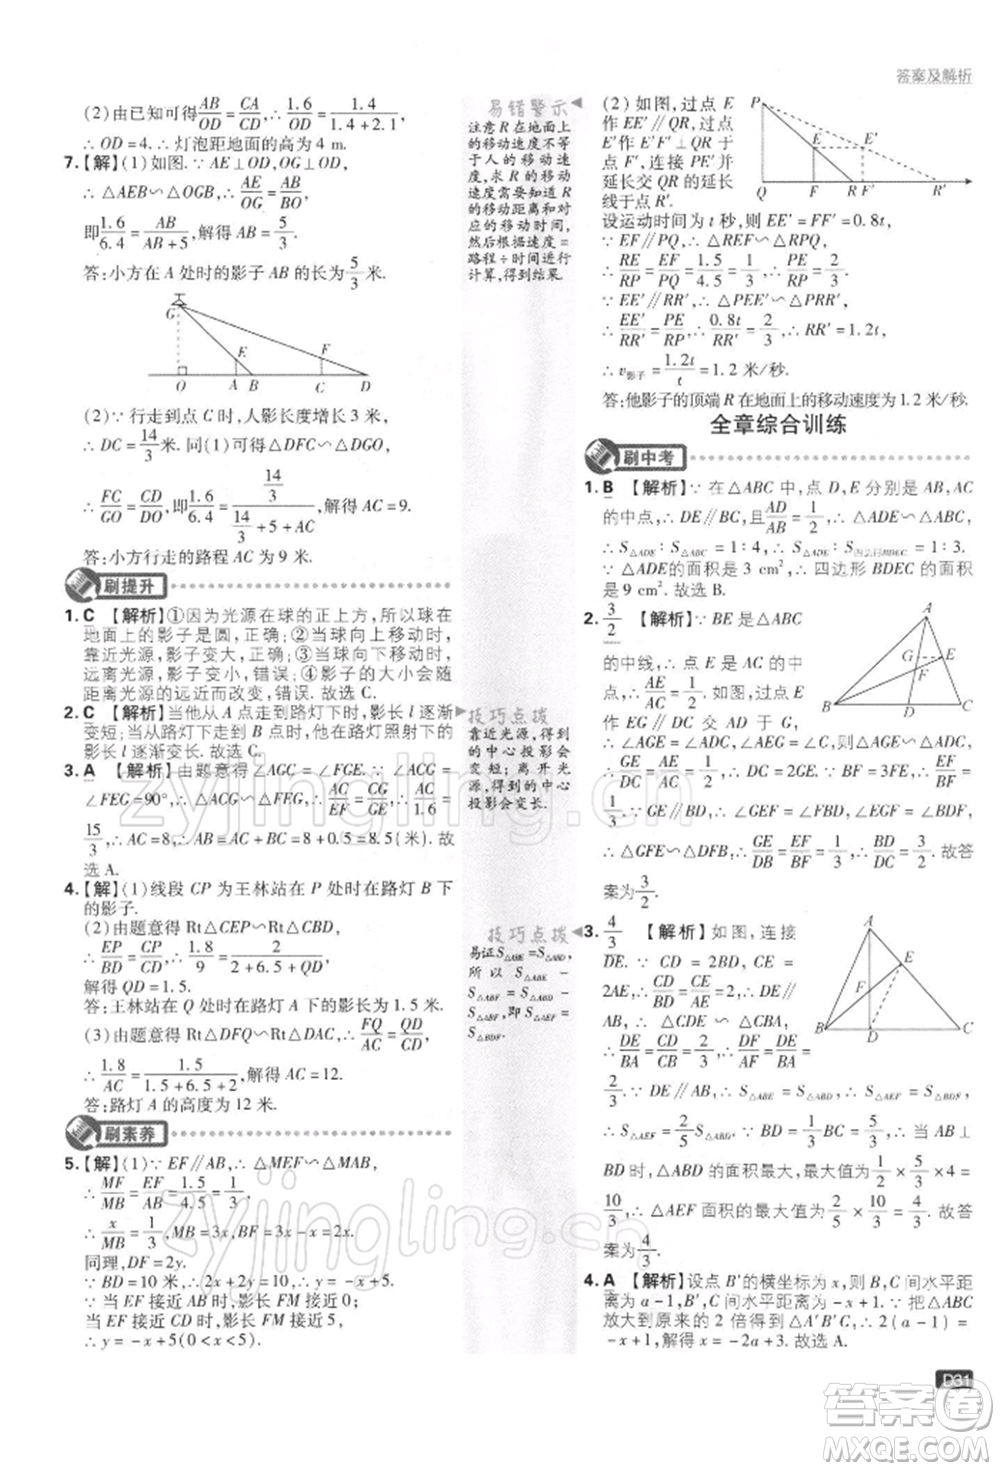 答案及解析
(2)由已知可得AB/OD=CA/CD,∴1.6/OD=1.4/(1.4+2.1),
∴OD=4.∴灯泡距地面的高为4 m.
7.【解】(1)如图.∵AE⊥OD,OG⊥OD,
∴△AEB∽△OGB,∴AE/OG=AB/BO,
即1.6/6.4=AB/(AB+5),解得AB=5/3.
答:小方在A处时的影子AB的长为5/3米.
G
E
F
O A B C D
(2)∵行走到点C时,人影长度增长3米,
∴DC=14/3米.同(1)可得△DFC∽△DGO,
∴FC/GO=CD/DO,即1.6/6.4=(14/3)/(14/3+5+AC),解得AC=9.
答:小方行走的路程AC为9米.
刷提升
1.C【解析】①因为光源在球的正上方,所以球在
地面上的影子是圆,正确;②当球向上移动时,
靠近光源,影子变大,正确;③当球向下移动时,
远离光源,影子变小,错误;④影子的大小随
距离光源的远近而改变,错误.故选C.
2.C【解析】当他从A点走到路灯下时,影长l逐渐
变短;当从路灯下走到B点时,其影子在路灯照射下的影
3.A【解析】由题意得∠AGC=∠FGE.∵∠ACG
=∠FEG=90°,∴△ACG∽△FEG,∴AC/EF=GC/GE,∴AC/1.6=
15/3,∴AC=8,∴AB=AC+BC=8+0.5=8.5(米).故
选A.
4.【解】(1)线段CP为王林站在P处时在路灯B下
的影子.
(2)由题意得Rt△CEP∽Rt△CBD,
∴EP/BD=CP/CD,∴1.8/9=2/(2+6.5+QD),
解得QD=1.5.
答:王林站在Q处时在路灯A下的影长为1.5米.
(3)由题意得Rt△DFQ∽Rt△DAC,∴FQ/AC=QD/CD,
∴1.8/AC=1.5/(1.5+6.5+2),解得AC=12.
答:路灯A的高度为12米.
刷素养
5.【解】(1)∵EF∥AB,∴△MEF∽△MAB,
∴MF/MB=EF/AB=1.5/4.5=1/3,
∴x/MB=1/3,MB=3x,BF=3x-x=2x.
同理,DF=2y.
∵BD=10米,∴2x+2y=10,∴y=-x+5.
∵当EF接近AB时,影长FM接近0;
当EF接近CD时,影长FM接近5,
∴y=-x+5(0<x<5).
易错警示
注意R在地面上
的移动速度不等
于人的移动速
度,求R的移动
速度需要知道R
的移动距离和对
应的移动时间,
然后根据速度=
路程÷时间进行
计算,得到结果.
技巧点拨
靠近光源,得到
的中心投影会
变短;离开光
源,得到的中心
投影会变长.
技巧点拨
易证S△ABE=S△ABD,
所以S△ABE-
S△ABF=S△ABD-
S△ABF,即S△AEF=
S△BDF.
(2)如图,过点E
作EE′∥QR,过点E′
作E′F′⊥QR于
点F′,连接PE′并
延长交QR的延长
线于点R′.
P
E E′
Q F R F′ R′
设运动时间为t秒,则EE′=FF′=0.8t,
∵EF∥PQ,∴△REF∽△RPQ,
∴RE/RP=EF/PQ=1.5/4.5=1/3,∴PE/RP=2/3.
∵EE′∥RR′,∴△PEE′∽△PRR′,
∴EE′/RR′=PE/PR,∴0.8t/RR′=2/3,∴RR′=1.2t,
∴v影子=1.2t/t=1.2(米/秒).
答:他影子的顶端R在地面上的移动速度为1.2米/秒.
全章综合训练
刷中考
1.B【解析】∵在△ABC中,点D,E分别是AB,AC
的中点,∴DE∥BC,且AD/AB=1/2,∴△ADE∽△ABC,
∴S△ADE:S△ABC=1:4,∴S△ADE:S四边形BDEC=1:3.
∵△ADE的面积是3 cm²,∴四边形BDEC的面积
是9 cm².故选B.
2.3/2【解析】∵BE是△ABC
的中线,∴AE/AC=1/2.如图,过点E
作EG∥DC交AD于G,
∴∠AGE=∠ADC,∠AEG=∠C,
A
G E
F
B D C
∴△AGE∽△ADC,∴GE/DC=AE/AC=1/2,∴DC=2GE.∵BF=3EF,∴EF/BF=
1/3.∵GE∥BD,∴∠GEF=∠FBD,∠EGF=∠BDF,
∴△GFE∽△DFB,∴GE/DB=EF/BF=1/3,∴BD/DC=3/2.故答
案为3/2.
3.4/3【解析】如图,连接
DE.∵CD=2BD,CE=
2AE,∴CD/BD=CE/AE=2,∴CD/CB=
CE/CA=2/3,∴△CDE∽△CBA,
∴DE/BA=CD/CB=2/3,∴DF/FA=DE/BA=
A
E
F
B D C
2/3.∵DE∥AB,∴S△ABE=S△ABD,∴S△AEF=S△BDF,
∴S△AEF=2/5 S△ABD.∵BD=1/3 BC=5/3,∴当AB⊥
BD时,△ABD的面积最大,最大值为1/2×5/3×4=
10/3,∴△AEF面积的最大值为2/5×10/3=4/3.故答
案为4/3.
4.A【解析】设点B′的横坐标为x,则B,C间水平距
离为a-1,B′,C间水平距离为-x+1.∵把△ABC
放大到原来的2倍得到△A′B′C,∴2(a-1)=
-x+1,解得x=-2a+3.故选A.
D31
zyjingling.cn
zyjingling.cn
答案圈
MXQE.COM